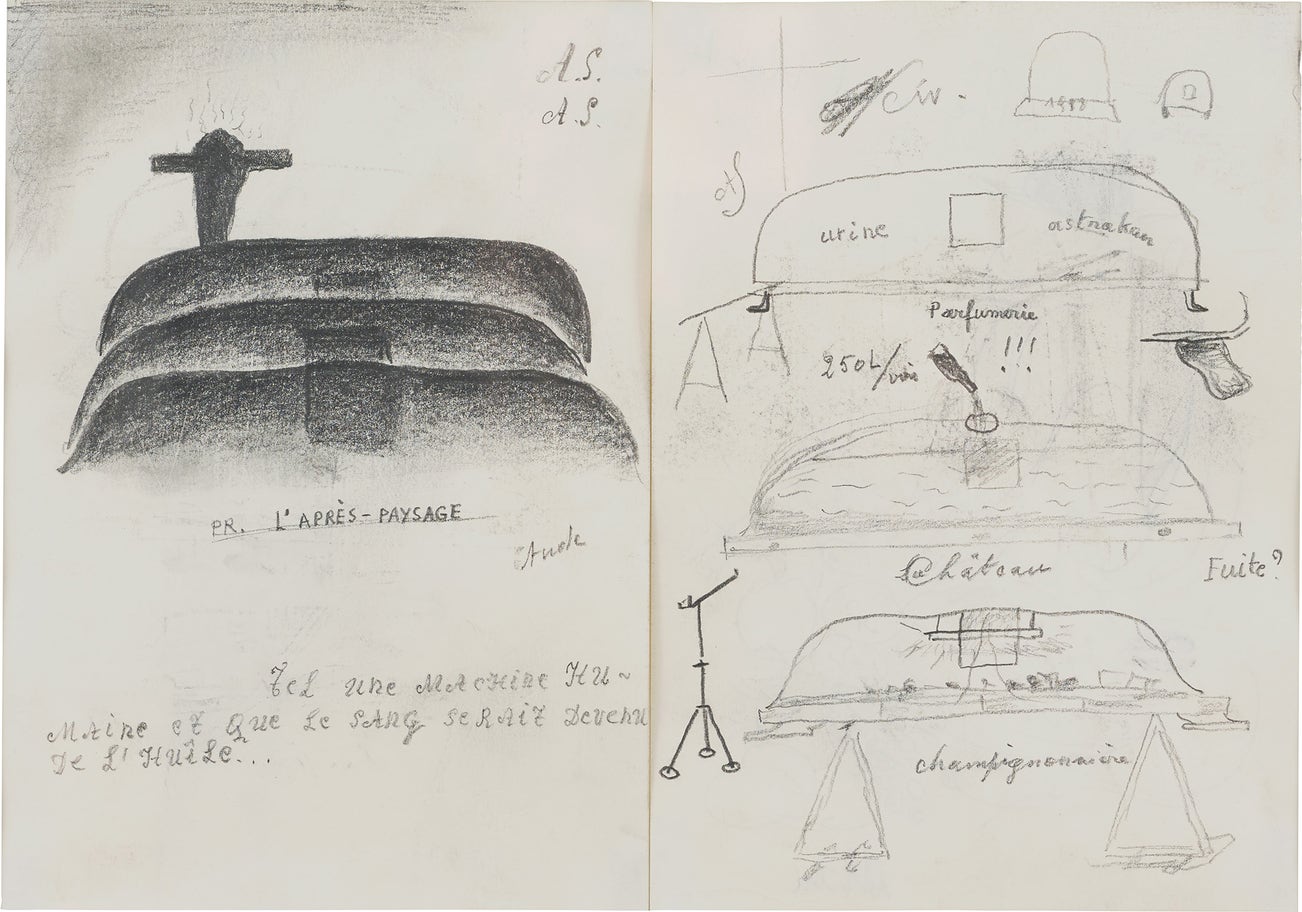 A.S.
A.S.
PR. L'APRÈS-PAYSAGE
Aude
Tel une MAcHine HU~
MAine et Que Le SANG SeRAiT Devenu
De L'HUîLe...
Civ.
urine
astrakan
Parfumerie
!!!
250L/
Château
Fuite?
champignonnière